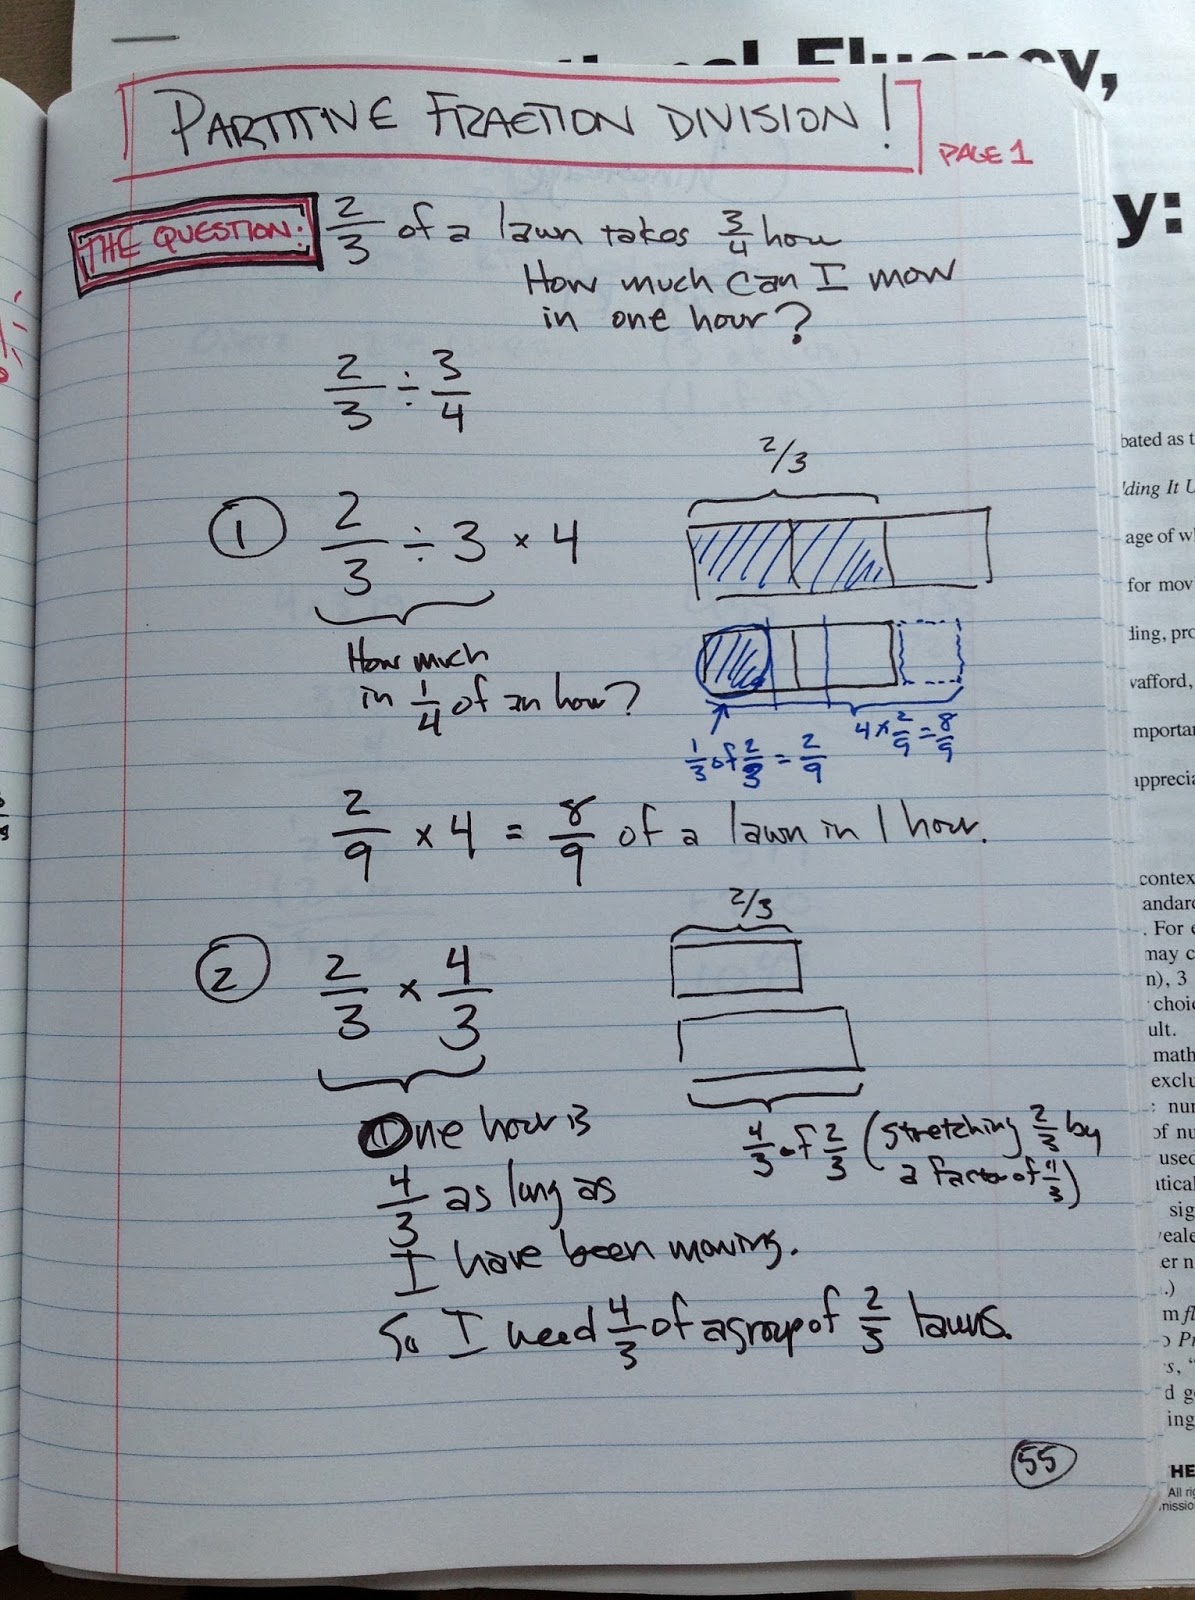 PARTITIVE FRACTION DIVISION!
PAGE 1
THE QUESTION:
2/3 of a lawn takes 3/4 hour
How much can I mow
in one hour?
2/3 ÷ 3/4
1
2/3 ÷ 3 × 4
How much
in 1/4 of an hour?
2/3
1/3 of 2/3 = 2/9
4 × 2/9 = 8/9
2/9 × 4 = 8/9 of a lawn in 1 hour.
2
2/3 × 4/3
2/3
One hour is
4/3 as long as
I have been mowing.
So I need 4/3 of a group of 2/3 lawns.
4/3 of 2/3 (stretching 2/3 by
a factor of 4/3)
55
Fluency,
y:
bated as t
lding It U
age of w
for mov
ling, pro
vafford,
mportan
apprecia
contex
andard
. For e
may c
n), 3
choic
ult.
math
exclu
: nur
of nu
used
tical
sig
eale
er n
.)
m fl
Pr
s, "
d g
ing
HE
All ri
missio